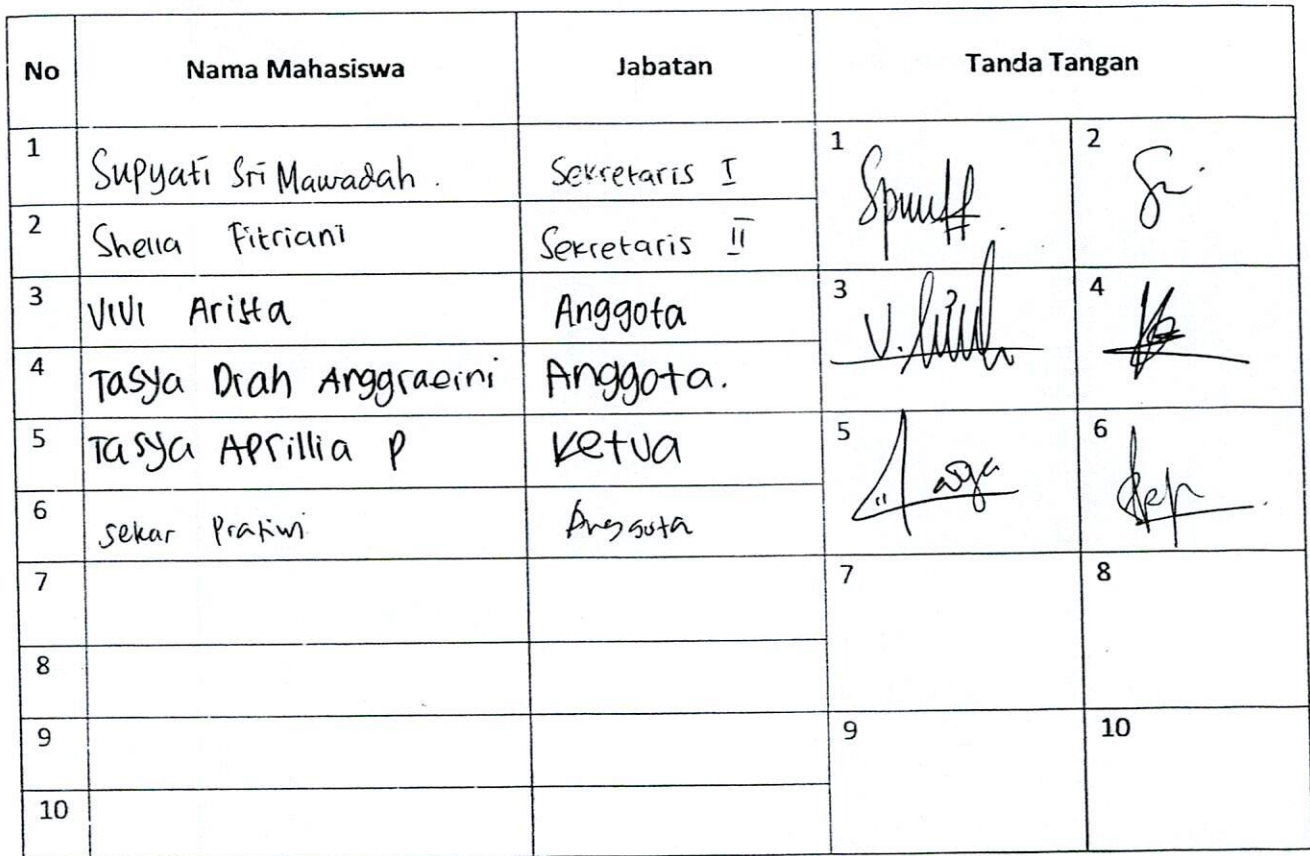 No Nama Mahasiswa Jabatan Tanda Tangan
1 Supyati Sri Mawadah. Sekretaris I 1 2
2 Shella Fitriani Sekretaris II
3 ViVi Arista Anggota 3 4
4 Tasya Diah Anggraeini Anggota.
5 Tasya Aprillia P Ketua 5 6
6 Sekar Pratiwi Anggota
7 7 8
8
9 9 10
10